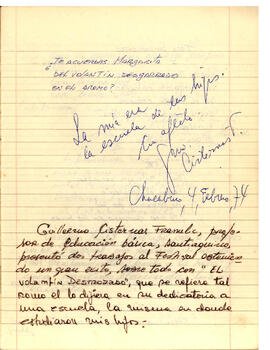 ¿TE ACUERDAS MARGARITA
DEL VOLANTÍN DESGARRADO
EN EL AROMO?
La mía era
la escuela de tus hijos.
Con afecto
Cisternas F.
Chacabuco, 4, Febrero, 74
Guillermo Cisternas Franulic, profe-
sor de Educación básica, santiaguino,
presentó dos trabajos al Festival obtenien-
do un gran éxito, sobre todo con "EL
VOLANTÍN DESGARRADO", que se refiere tal
como él lo dijera en su dedicatoria a
una escuela, la misma en donde
estudiaron mis hijos.-